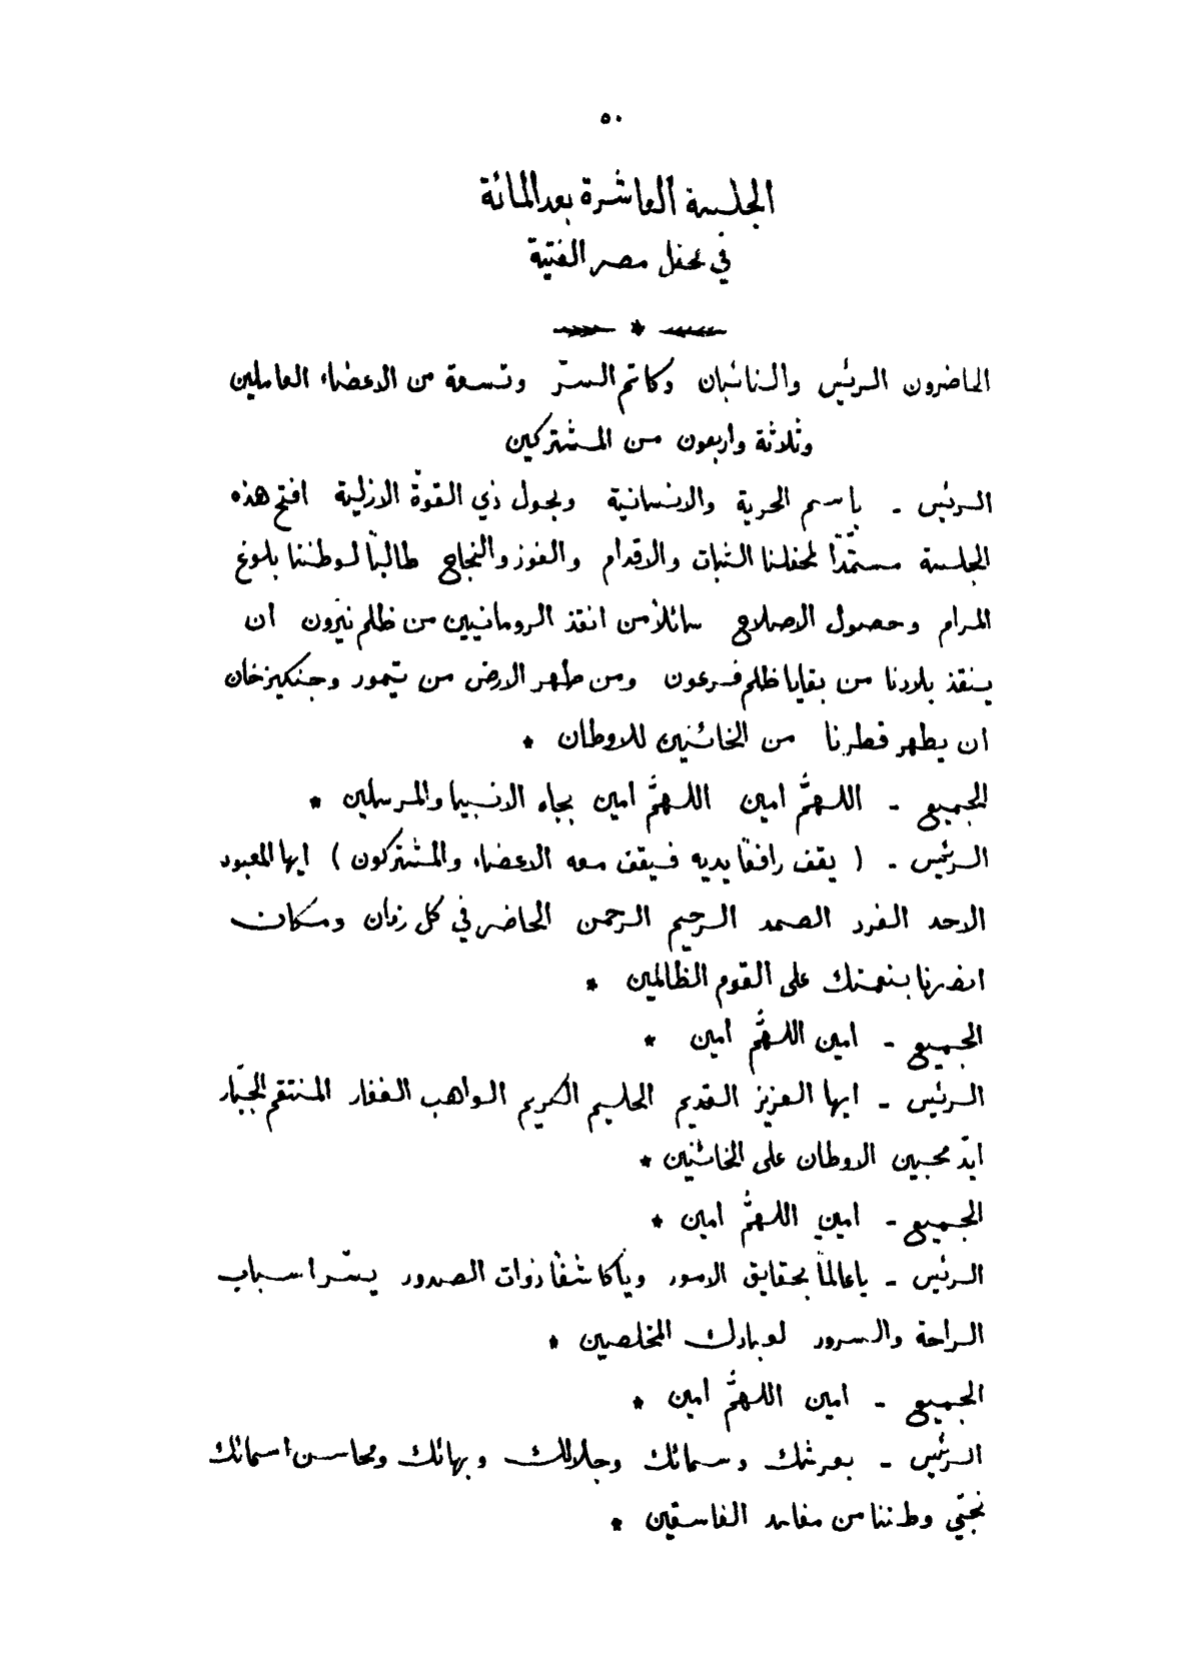 ٥٠
الجلسة العاشرة بعد المائة
في محفل مصر الفتية
الحاضرون الرئيس والنائبان وكاتم السرّ وتسعة من الاعضاء العاملين
وثلاثة واربعون من المشتركين
الرئيس - باسم الحرية والانسانية وبحول ذي القوة الازلية افتح هذه
الجلسة مستمدّاً لمحفلنا الثبات والاقدام والفوز والنجاح طالباً لوطننا بلوغ
المرام وحصول الاصلاح سائلاً من انقذ الرومانيين من ظلم نيرون ان
ينقذ بلادنا من بقايا ظلم فرعون ومن طهر الارض من تيمور وجنكيزخان
ان يطهر قطرنا من الخائنين للاوطان *
الجميع - اللهمَّ امين اللهمَّ امين بجاه الانبيا والمرسلين *
الرئيس - ( يقف رافعاً يديه فيقف معه الاعضاء والمشتركون ) ايها المعبود
الاحد الفرد الصمد الرحيم الرحمن الحاضر في كل زمان ومكان
انصرنا بنعمتك على القوم الظالمين *
الجميع - امين اللهمَّ امين *
الرئيس - ايها العزيز القديم الحليم الكريم الواهب الغفار المنتقم الجبّار
ايدّ محبين الاوطان على الخائنين *
الجميع - امين اللهمَّ امين *
الرئيس - ياعالماً بحقايق الامور وياكاشفاً ذوات الصدور يسّر اسباب
الراحة والسرور لعبادك المخلصين *
الجميع - امين اللهمَّ امين *
الرئيس - بعرشك وسمائك وجلالك وبهائك ومحاسن اسمائك
نجّي وطننا من مفاسد الفاسقين *